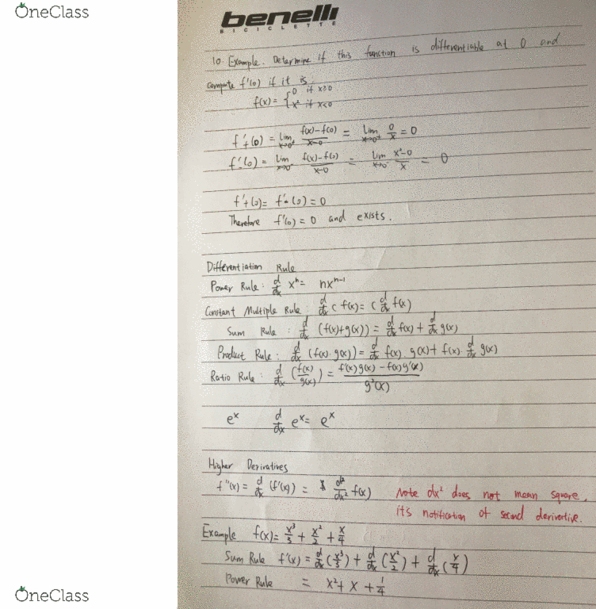 OneClass
benelli
BICICLETTE
10. Example. Determine if this function is differentiable at 0 and
compute f'(0) if it is.
f(x) = { 0 if x≥0
x² if x<0
f'₊(0) = lim x→0⁺ f(x)-f(0) / x-0 = lim x→0⁺ 0/x = 0
f'₋(0) = lim x→0⁻ f(x)-f(0) / x-0 = lim x→0⁻ x²-0 / x = 0
f'₊(0) = f'₋(0) = 0
Therefore f'(0) = 0 and exists.
Differentiation Rule
Power Rule : d/dx xⁿ = nxⁿ⁻¹
Constant Multiple Rule d/dx c f(x) = c d/dx f(x)
Sum Rule : d/dx (f(x)+g(x)) = d/dx f(x) + d/dx g(x)
Product Rule : d/dx (f(x)·g(x)) = d/dx f(x) · g(x) + f(x) d/dx g(x)
Ratio Rule : d/dx (f(x)/g(x)) = f'(x)g(x) - f(x)g'(x) / g²(x)
eˣ d/dx eˣ = eˣ
Higher Derivatives
f''(x) = d/dx (f'(x)) = d²/dx² f(x) Note dx² does not mean square,
its notification of second derivative.
Example f(x) = x³/3 + x²/2 + x/4
Sum Rule f'(x) = d/dx (x³/3) + d/dx (x²/2) + d/dx (x/4)
Power Rule = x² + x + 1/4
OneClass